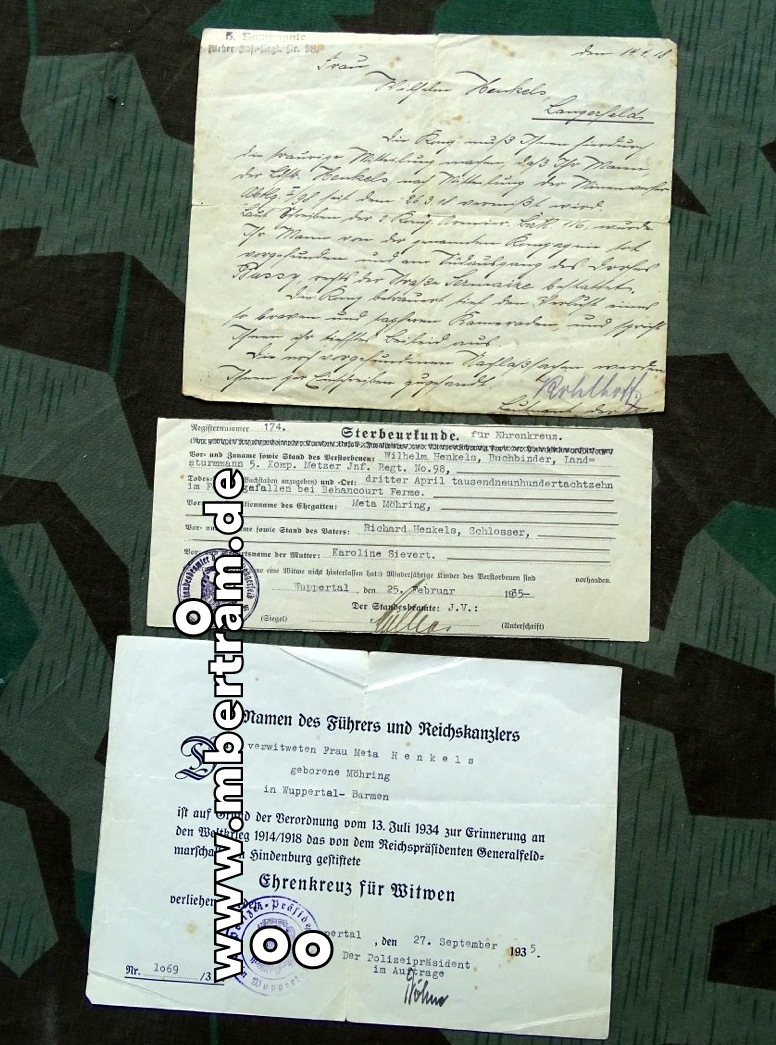 5. Kompagnie
Metzer Inf.-Regt. Nr. 98.
den 14.4.18
Frau
Wilhelm Henkels,
Langerfeld
Die Komp muß Ihnen hierdurch
die traurige Mitteilung machen, daß Ihr Mann
der Lstr. Henkels nach Mitteilung der Minenwerfer
seit dem 26.3.18 vermißt wird.
Laut Schreiben der 2. Armier. Batl. 116, wurde
Ihr Mann von der genannten Kompagnie tot
vorgefunden und am Südausgang des Dorfes
Bussy, rechts der Straße Sermaize bestattet.
Die Komp betrauert tief den Verlust eines
so braven und tapferen Kameraden, und spricht
Ihnen ihr tiefstes Beileid aus.
Die noch vorgefundenen Nachlaßsachen werden
Ihnen per Einschreiben zugesandt.
Kohlhoff
Leutnant
Registernummer 174.
Sterbeurkunde. für Ehrenkreuz.
Vor- und Zuname sowie Stand des Verstorbenen: Wilhelm Henkels, Buchbinder, Land=
sturmmann 5. Komp. Metzer Jnf. Regt. No.98,
Todes- (Buchstaben anzugeben) und -Ort: dritter April tausendneunhundertachtzehn
im gefallen bei Behancourt Ferme.
Vor- des Ehegatten: Meta Möhring,
Vor- sowie Stand des Vaters: Richard Henkels, Schlosser,
Vor- der Mutter: Karoline Sievert.
eine Witwe nicht hinterlassen hat:) Minderjährige Kinder des Verstorbenen sind vorhanden.
Wuppertal, den 25. Februar 1935-
Der Standesbeamte: J.V.:
(Siegel) (Unterschrift)
Namen des Führers und Reichskanzlers
verwitweten Frau Meta Henkels
geborene Möhring
in Wuppertal- Barmen
ist auf Grund der Verordnung vom 13. Juli 1934 zur Erinnerung an
den Weltkrieg 1914/1918 das von dem Reichspräsidenten Generalfeld=
marschall von Hindenburg gestiftete
Ehrenkreuz für Witwen
verliehen worden.
Wuppertal, den 27. September 1935.
Der Polizeipräsident
im Auftrage
Nr. 1069 /3
www.mbertram.de